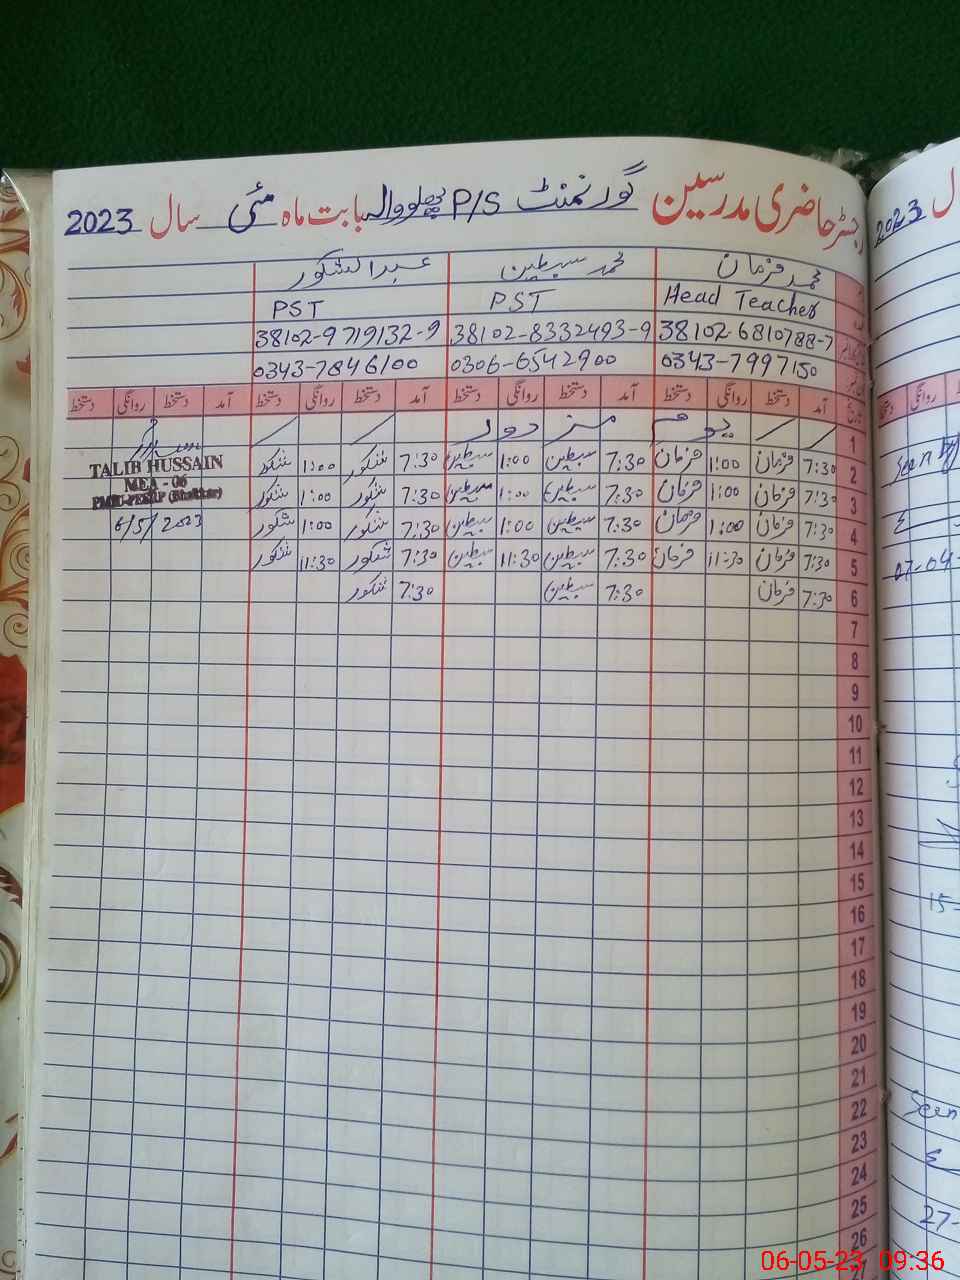 رجسٹر حاضری مدرسین گورنمنٹ P/S بابت ماہ مئی سال 2023
محمد فرمان محمد سبطین عبدالشکور
Head Teacher PST PST
38102-6810788-7 38102-8332493-9 38102-9719132-9
0343-7997150 0306-6542900 0343-7846100
آمد دستخط روانگی دستخط آمد دستخط روانگی دستخط آمد دستخط روانگی دستخط آمد دستخط روانگی دستخط
1 یوم مزدور
2 7:30 فرمان 1:00 فرمان 7:30 سبطین 1:00 سبطین 7:30 شکور 1:00 شکور
3 7:30 فرمان 1:00 فرمان 7:30 سبطین 1:00 سبطین 7:30 شکور 1:00 شکور
4 7:30 فرمان 1:00 فرمان 7:30 سبطین 1:00 سبطین 7:30 شکور 1:00 شکور
5 7:30 فرمان 11:30 فرمان 7:30 سبطین 11:30 سبطین 7:30 شکور 11:30 شکور
6 7:30 فرمان 7:30 سبطین 7:30 شکور
TALIB HUSSAIN
MEA - 06
(Bhakkar)
6/5/2023
7
8
9
10
11
12
13
14
15
16
17
18
19
20
21
22
23
24
25
26
2023
Seen by
07-04-
15-
Seen
27-
06-05-23 09:36